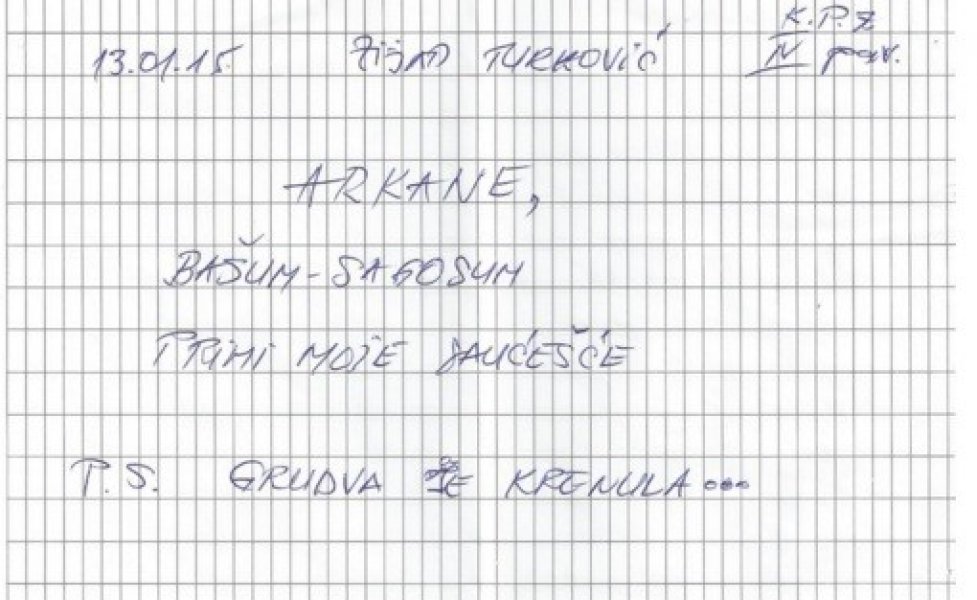 K.P.Z
13.01.15. ZIJAD TURKOVIĆ IV pav.
ARKANE,
BAŠUM-SAGOSUM
PRIMI MOJE SAUĆEŠĆE
P.S. GRUDVA JE KRENULA...